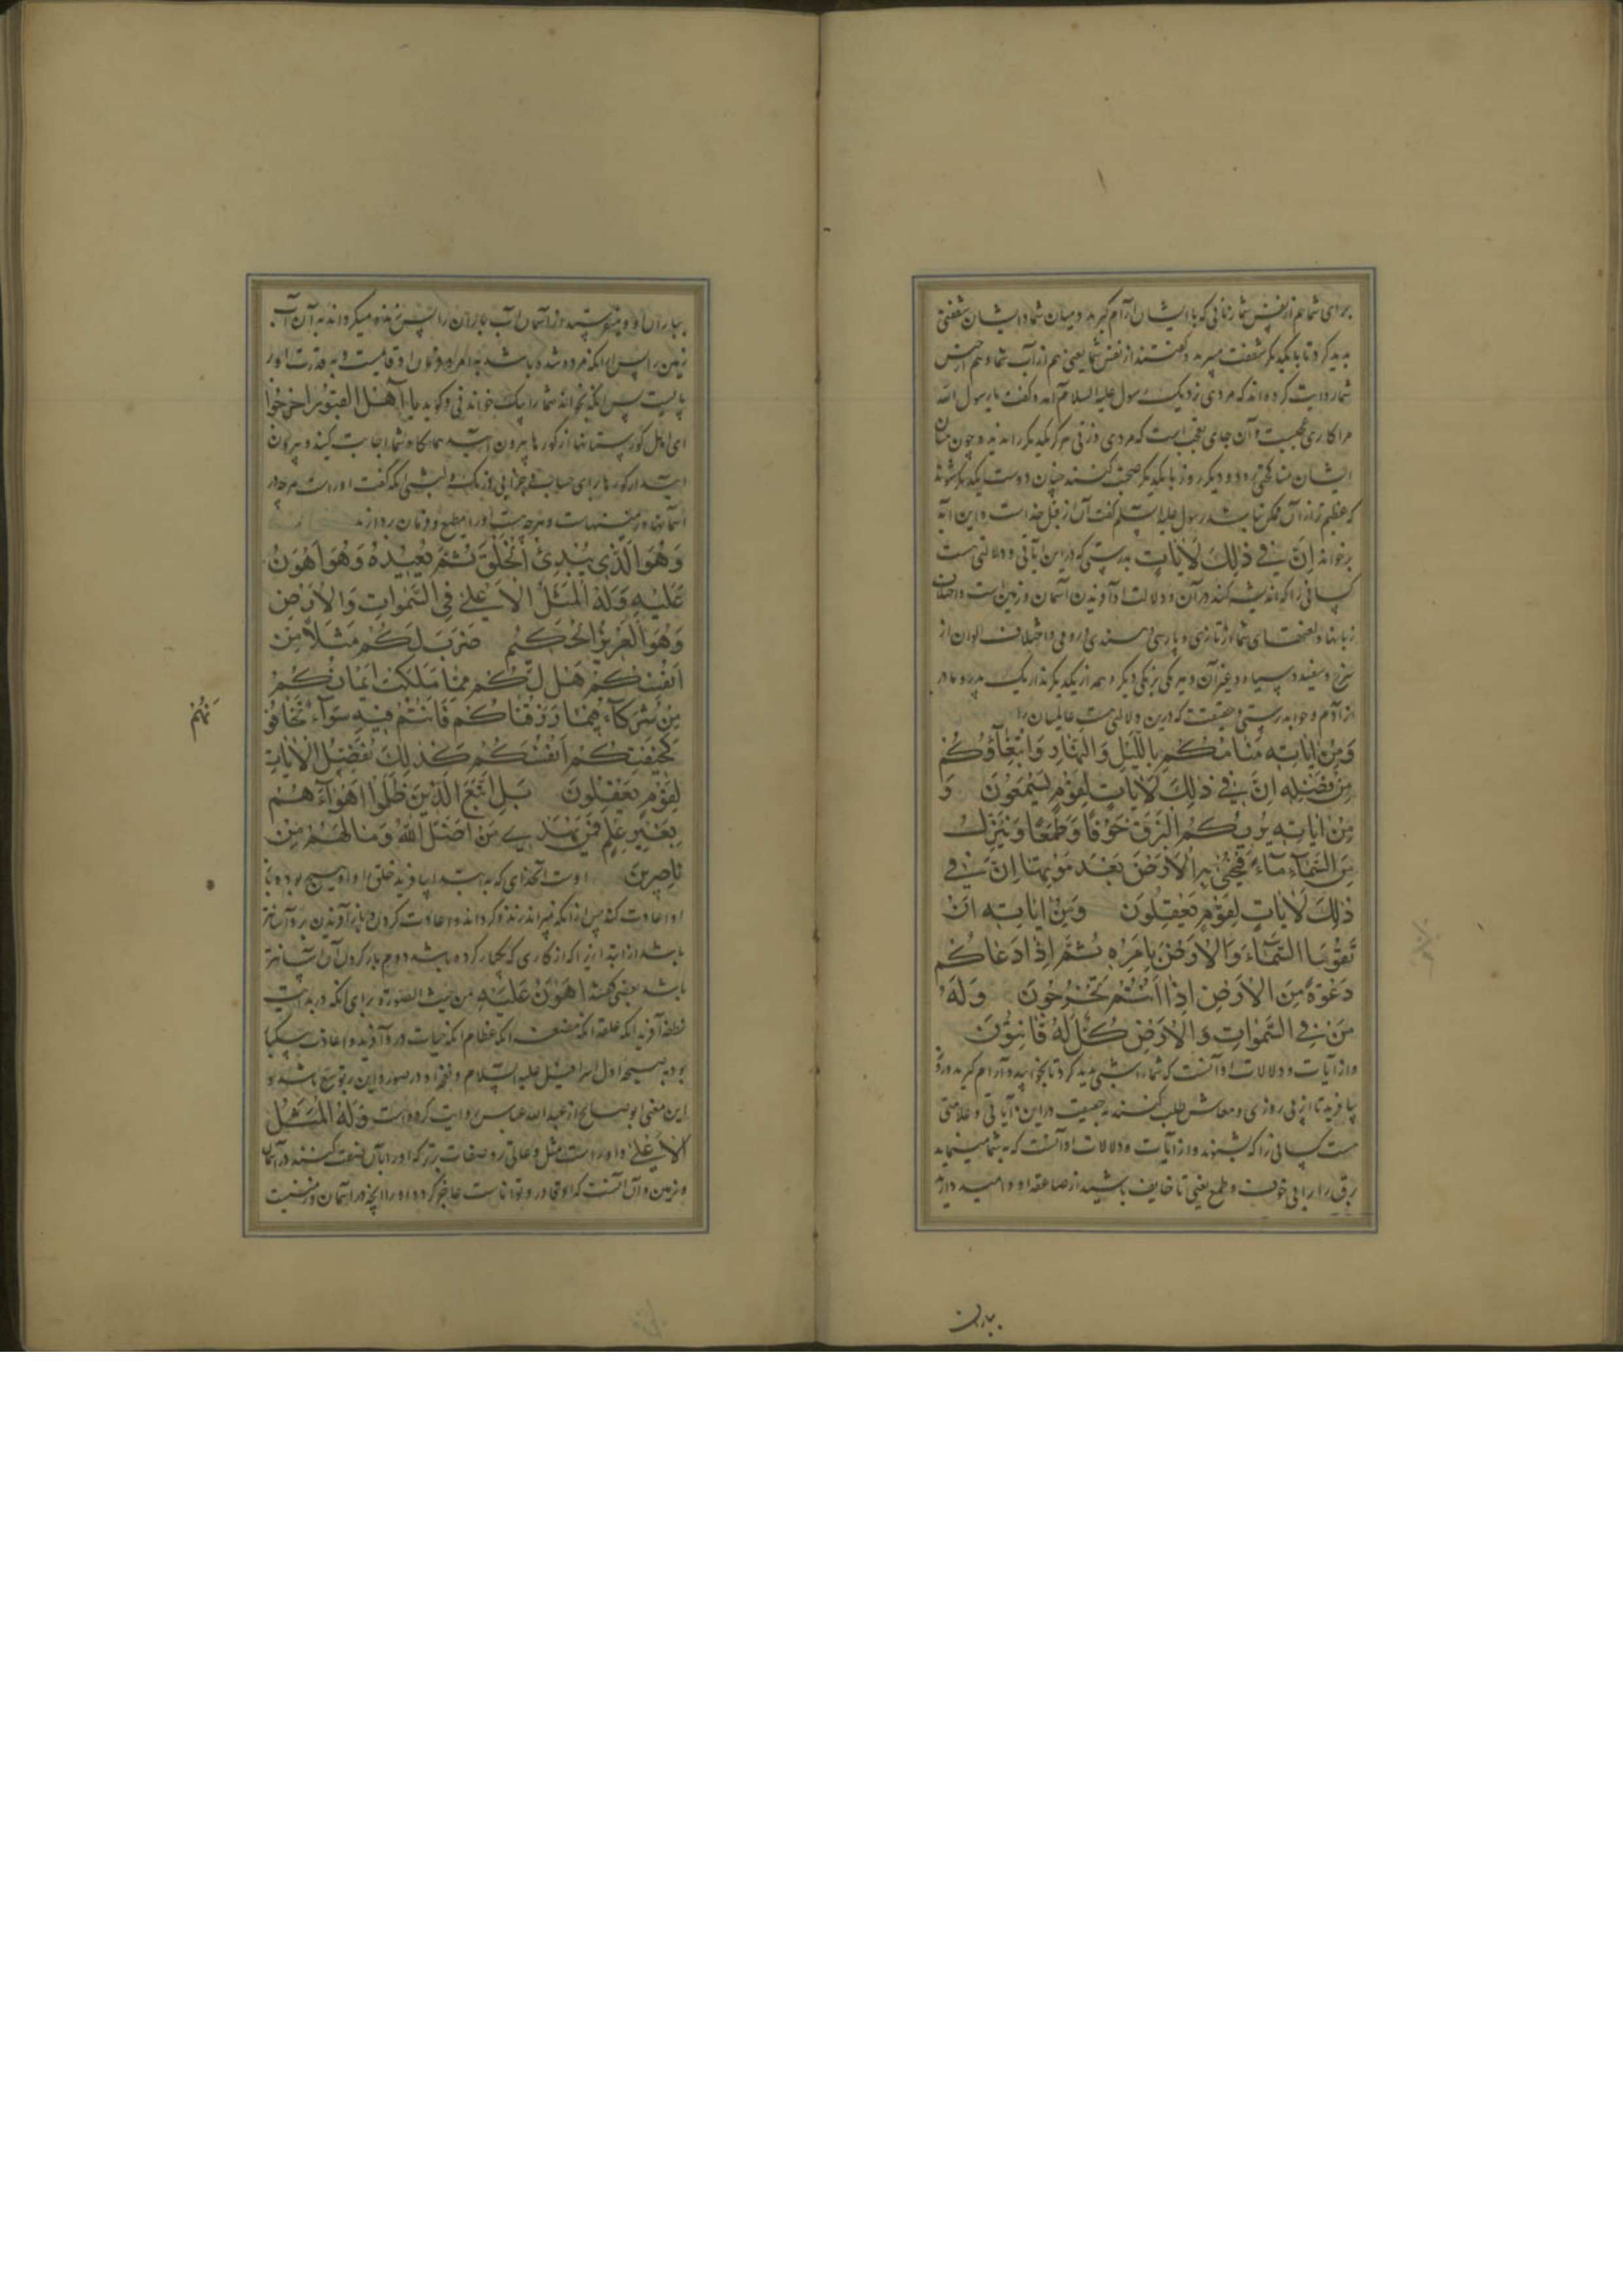 برای شما هم از نفس شما زنانی که با ایشان آرام گیرید و میان شما و ایشان شفقتی
بدید کرد تا بر یکدیگر شفقت میبرید و گفتند از نفس شما یعنی هم از آب شما و هم از جنس
شما روایت کرده اند که مردی نزدیک رسول علیه السلام آمد و گفت یا رسول الله
مرا کاری عجبست و آن جای تعجب است که مردی و زنی هرگز یکدیگر را ندیده چون میان
ایشان مناکحتی رود دیگر روز با یکدیگر صحبت کنند چنان دوست یکدیگر شوند
که عظیم تر از آن ممکن نباشد رسول علیه السلم گفت آن از قبل خداست و این آیه
برخواند اِنَّ فِي ذٰلِكَ لَاٰيَاتٍ بدرستی که در این آیاتی و دلالتی هست
کسانی را که اندیشه کنند در آن و دلالت او آفریدن آسمان و زمین است و اختلاف
زبانها و لغتهای شما از تازی و پارسی و هندی و رومی و اختلاف الوان از
سرخ و سفید و سیاه و غیر آن و هر یکی برنگی دیگر و همه از یکدیگرند از یک پدر و مادر
از آدم و حوا بدرستی و حقیقت که درین دلالتی هست عالمیان را
وَمِنْ اٰيَاتِهِ مَنَامُكُمْ بِاللَّيْلِ وَالنَّهَارِ وَابْتِغَآؤُكُمْ
مِنْ فَضْلِهِ اِنَّ فِي ذٰلِكَ لَاٰيَاتٍ لِقَوْمٍ يَسْمَعُونَ وَ
مِنْ اٰيَاتِهِ يُرِيكُمُ الْبَرْقَ خَوْفًا وَطَمَعًا وَيُنَزِّلُ
مِنَ السَّمَآءِ مَآءً فَيُحْيِي بِهِ الْاَرْضَ بَعْدَ مَوْتِهَا اِنَّ فِي
ذٰلِكَ لَاٰيَاتٍ لِقَوْمٍ يَعْقِلُونَ وَمِنْ اٰيَاتِهِ اَنْ
تَقُومَ السَّمَآءُ وَالْاَرْضُ بِاَمْرِهِ ثُمَّ اِذَا دَعَاكُمْ
دَعْوَةً مِنَ الْاَرْضِ اِذَا اَنْتُمْ تَخْرُجُونَ وَلَهُ
مَنْ فِي السَّمٰوَاتِ وَالْاَرْضِ كُلٌّ لَهُ قَانِتُونَ
و از آیات و دلالات او آنست که شما را شبی بدید کرد تا بخوابید و آرام گیرید و روز
بیافرید تا از پی روزی و معاش طلب کنند بحقیقت در این آیاتی و علامتی
هست کسانی را که بشنوند و از آیات و دلالات او آنست که بشما مینماید
برق را برای خوف و طمع یعنی تا خایف باشید از صاعقه او و امید دارید
باران
بباران او و میفرستد از آسمان آب باران را پس زنده میگرداند به آن آب
زمین را پس از آنکه مرده شده باشد به امر و فرمان او قایمست و به قدرت او بر
پایست پس آنکه بخواند شما را یک خواندنی و گوید یَا اَهْلَ الْقُبُورِ اخْرُجُوا
ای اهل گورستانها از گورها بیرون آیید همانگاه شما اجابت کنید و بیرون
آیید از گورها برای حساب و جزا پس روز یک و پس آنگه گفت او راست هرچه در
آسمانها و زمینهاست و هرچه هست او را مطیع و فرمان بردارند
وَهُوَ الَّذِي يُبْدِئُ الْخَلْقَ ثُمَّ يُعِيدُهُ وَهُوَ اَهْوَنُ
عَلَيْهِ وَلَهُ الْمَثَلُ الْاَعْلٰى فِي السَّمٰوَاتِ وَالْاَرْضِ
وَهُوَ الْعَزِيزُ الْحَكِيمُ ضَرَبَ لَكُمْ مَثَلًا مِنْ
اَنْفُسِكُمْ هَلْ لَكُمْ مِمَّا مَلَكَتْ اَيْمَانُكُمْ
مِنْ شُرَكَآءَ فِيمَا رَزَقْنَاكُمْ فَاَنْتُمْ فِيهِ سَوَآءٌ تَخَافُو
نَهُمْ
كَخِيفَتِكُمْ اَنْفُسَكُمْ كَذٰلِكَ نُفَصِّلُ الْاٰيَاتِ
لِقَوْمٍ يَعْقِلُونَ بَلِ اتَّبَعَ الَّذِينَ ظَلَمُوا اَهْوَآءَهُمْ
بِغَيْرِ عِلْمٍ فَمَنْ يَهْدِي مَنْ اَضَلَّ اللّٰهُ وَمَا لَهُمْ مِنْ
نَاصِرِينَ اوست آنخدای که به ابتدا بیافرید خلق را و او هیچ بود و باز
او اعادت کند پس از آنکه بمیراند زنده گرداند و اعادت کردن و باز آفریدن برو آسانتر
باشد از ابتدا زیرا که از کاری که یکبار کرده باشد دوم بار کردن آن آسانتر
باشد بعضی گفتند اَهْوَنُ عَلَيْهِ من حیث الصورة برای آنکه در بدایت
نطفه آفرید آنکه علقه آنکه مضغه آنکه عظام آنکه حیات درو آفرید و اعادت بیکبار
بود به صیحه اول اسرافیل علیه السلام و نفخ او در صور و این بر توسع باشد و
این معنی ابوصالح از عبدالله عباس روایت کرده است وَلَهُ الْمَثَلُ
الْاَعْلٰى و او راست مثل وعالی رو صفات برتر که او را بآن صفت کنند در آسمان
و زمین و آن آنست که او قادر و تواناست عاجز نگردد او را آنچه در آسمان و زمینست